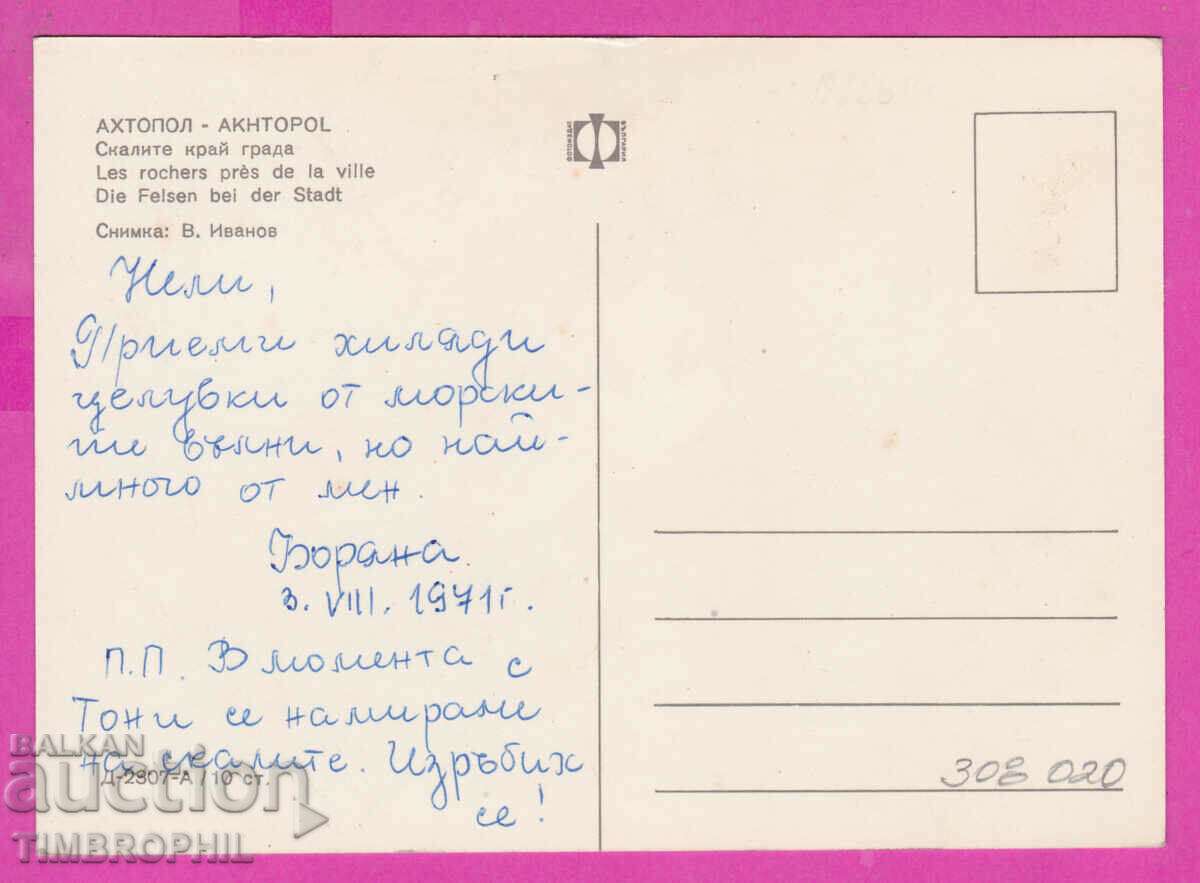 АХТОПОЛ - AKHTOPOL
Скалите край града
Les rochers près de la ville
Die Felsen bei der Stadt
Снимка: В. Иванов
ФОТОИЗДАТ
БЪЛГАРИЯ
Нели,
Приеми хиляди
целувки от морски-
те вълни, но най-
много от мен.
Боряна
3. VIII. 1971 г.
П.П. В момента с
Тони се намираме
на скалите. Изръбих
се!
Д-2307-А / 10 ст.
308 020
BALKAN
auction
TIMBROPHIL